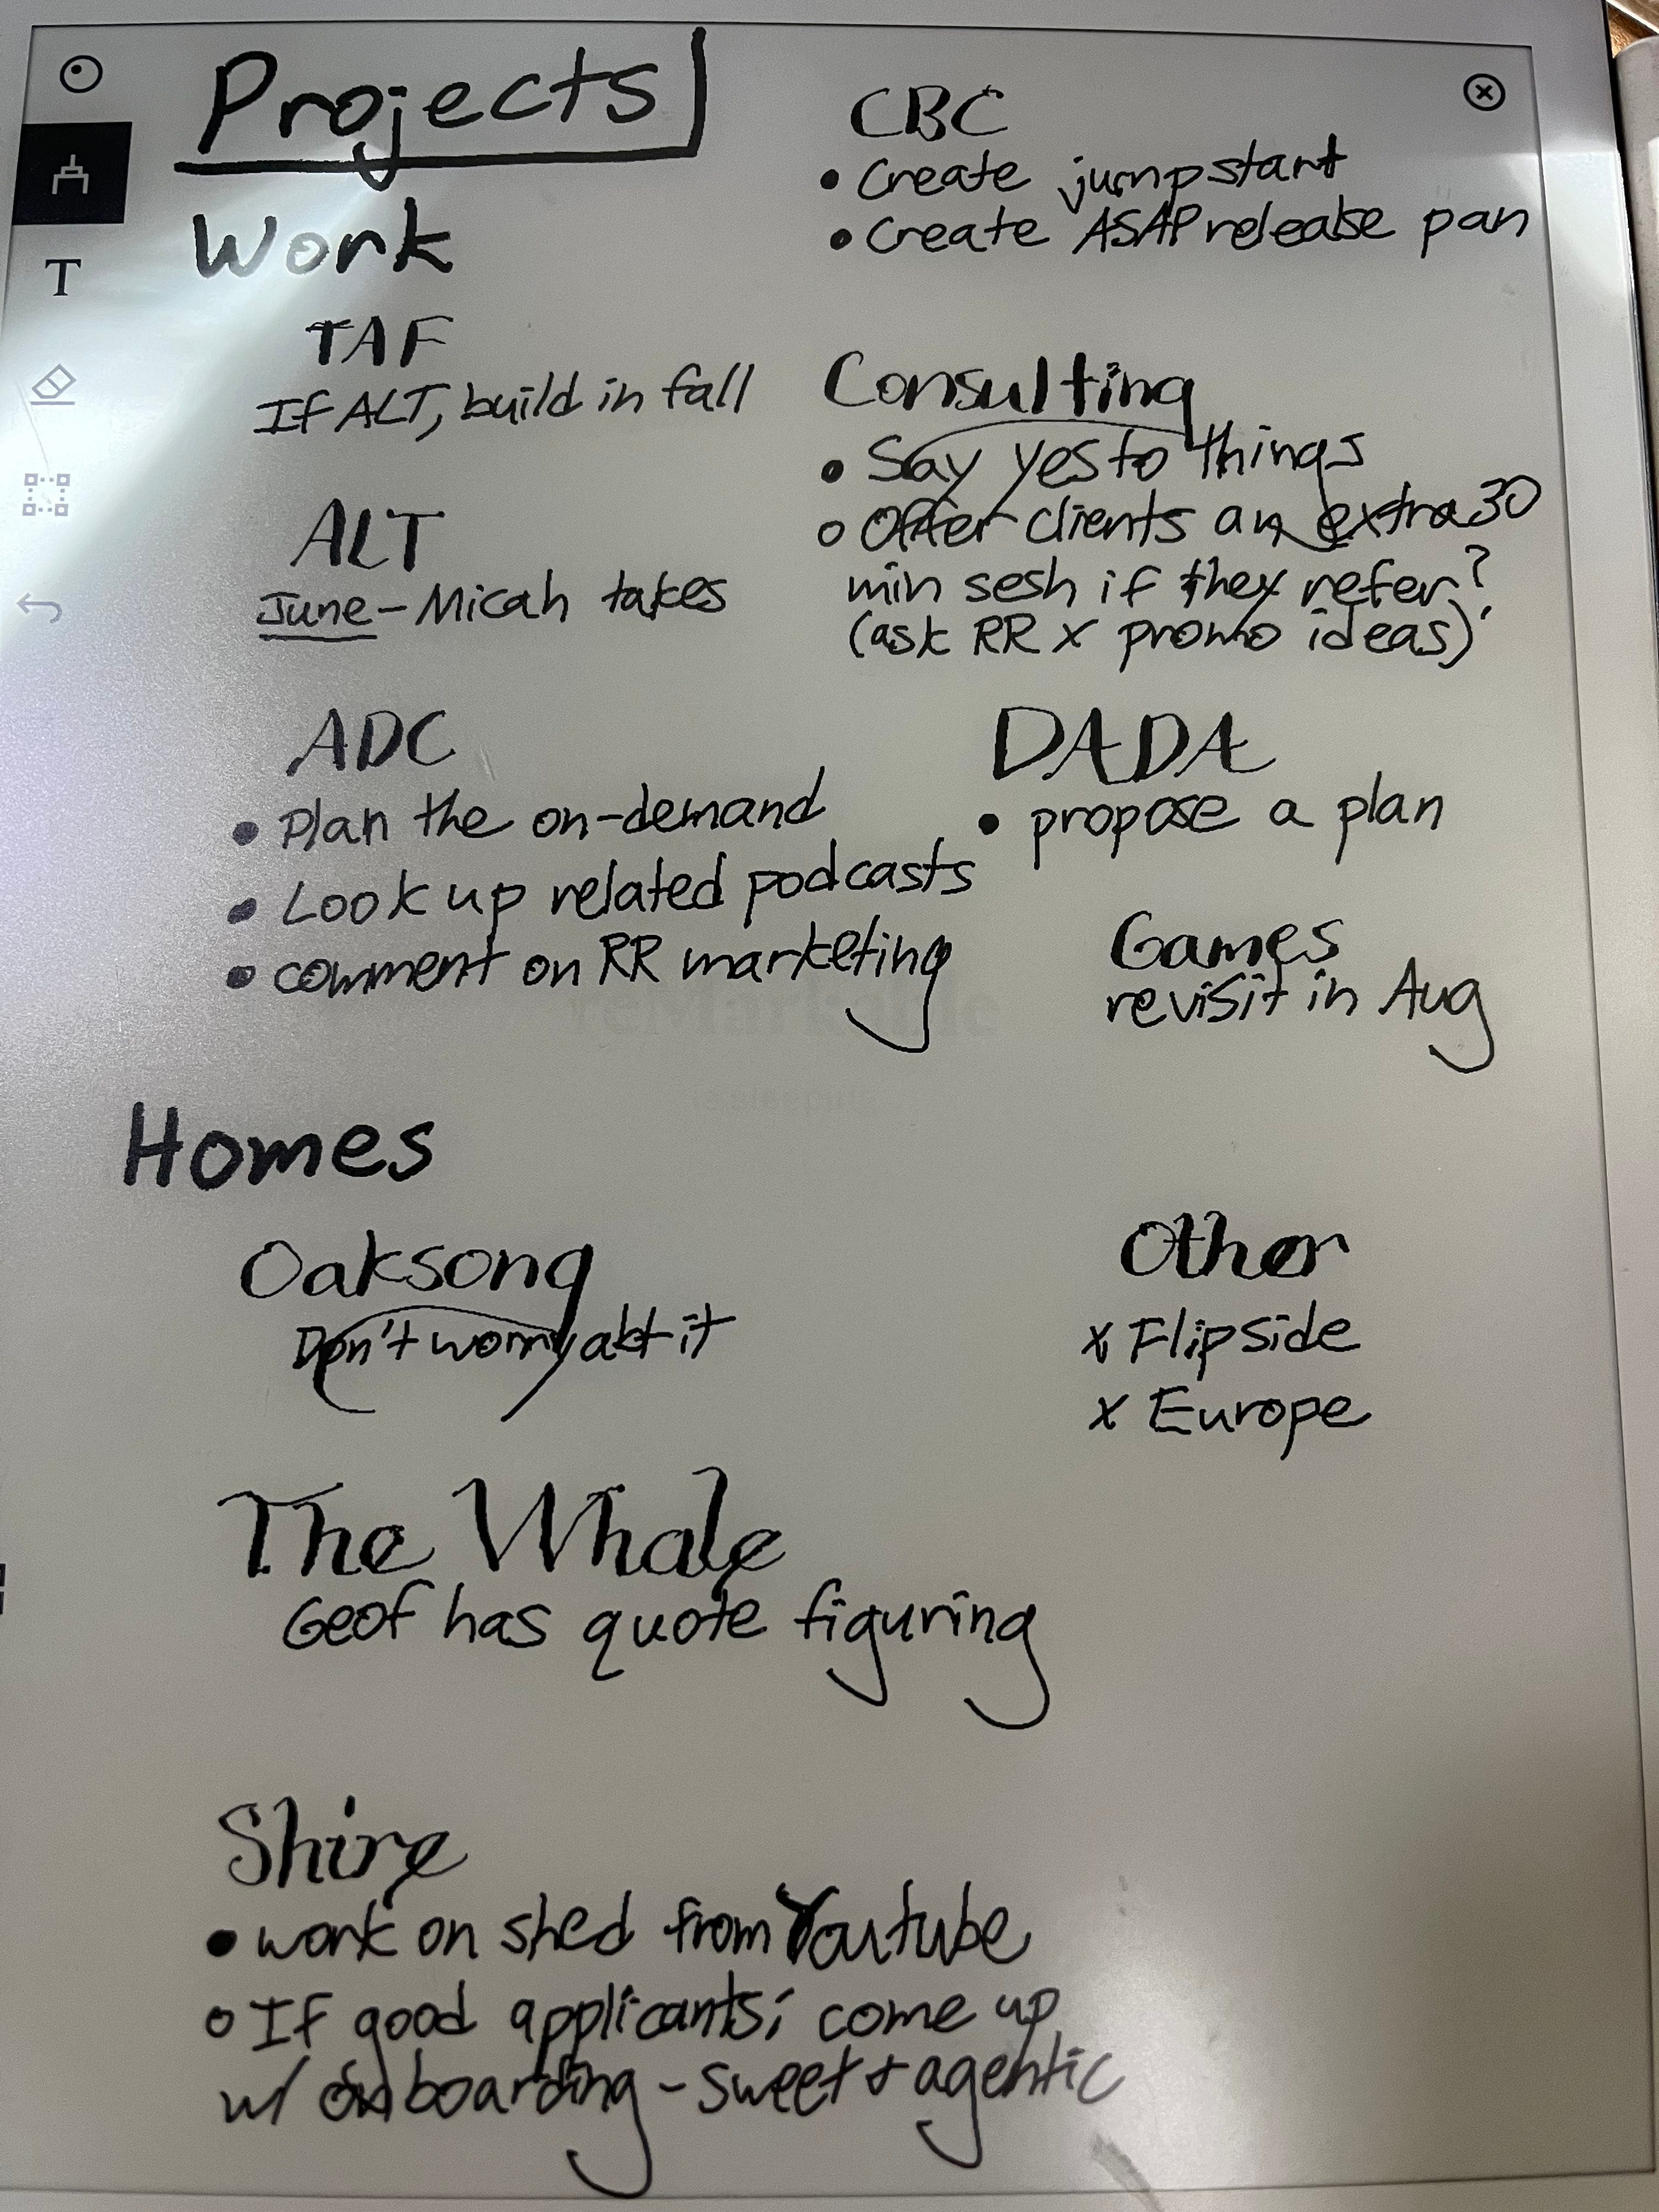 Projects
Work
TAF
If ALT, build in fall
ALT
June - Micah takes
ADC
• Plan the on-demand
• Look up related podcasts
• comment on RR marketing
CBC
• Create jumpstart
• Create ASAP release pan
Consulting
• Say yes to things
○ Offer clients an extra 30
min sesh if they refer?
(ask RR x promo ideas)
DADA
• propose a plan
Games
revisit in Aug
Homes
Oaksong
Don't worry abt it
The Whale
Geof has quote figuring
Shire
• work on shed from Youtube
○ If good applicants; come up
w/ onboarding - sweet + agentic
Other
x Flipside
x Europe
T